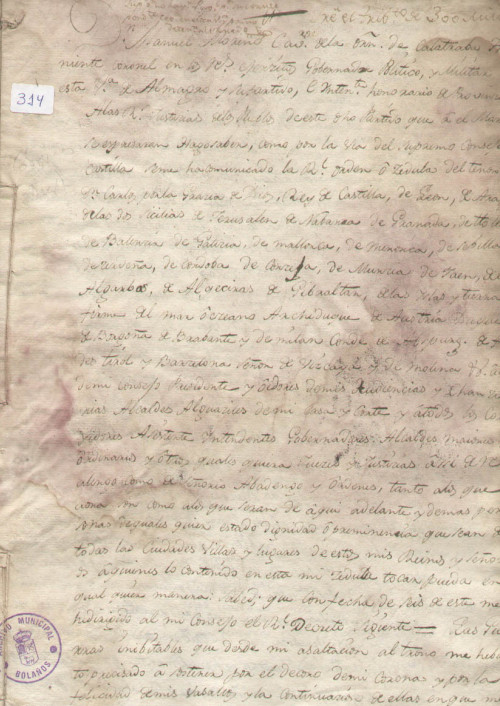 314
Dn. Manuel Moreno Cavro. de la orn. de Calatraba
niente coronel en los Rs. exercitos Governador Politico, y Militar
esta Va. de Almagro y su partido, é Intente. honorario de Provincia
Alas Rs. Justicias de los Pueblos de este dho Partido que á el Mar
se expresaran Hago saver, como por la via del Supremo Consejo
Castilla se me ha comunicado la Rl. orden ó Zedula del tenor
Dn. Carlos por la gracia de Dios, Rey de Castilla, de Leon, de Ara
delas dos Sicilias de Jerusalen de Nabarra de Granada, de To
de Balenzia de Galizia, de Mallorca, de Menorca, de Sevilla
de Cerdeña, de Cordova de Corzega, de Murcia de Jaen, de
Algarbes, de Algeciras de Gibraltar, de las Yslas y tierra
firme del mar oceano Archeduque de Austria Duque
de Borgoña de Brabante y de Milan Conde de Abspurg. de
des tirol y Barzelona Señor de Vizcaya y de Molina &a. A
de mi consejo Presidente y Oidores de mis Audiencias y Chan
rias Alcaldes Alguaciles de mi Casa y Corte y atodos los Co
gidores Asistente Yntendentes Gobernadores Alcaldes maiores
ordinarios y otros quales quiera Juezes y Justicias asi de Re
alengo como de Señorio Abadengo y Ordenes, tanto alos que
aora son como alos que seran de aqui adelante y demas per
sonas de quales quier estado dignidad ó preeminencia que sean
todas las Ciudades Villas y lugares de estos mis Reinos y Seño
rios á quienes lo contenido en esta mi Zedula tocar pueda en
qual quier manera: Saved, que con fecha de seis de este m
he dirijido al mi Consejo el Rl. Decreto siguiente = Las
inebitables que desde mi exaltacion al trono me ha
to precisado á sostener por el decoro de mi Corona, y por la
felicidad de mis vasallos, y la continuacion de ellas en que m
ARCHIVO MUNICIPAL
BOLAÑOS